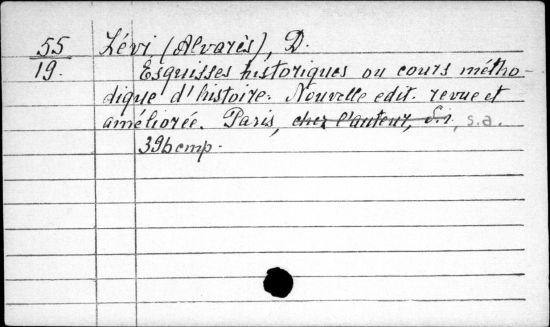 55 Lévi (Alvarès), D.
19. Esquisses historiques ou cours métho-
dique d'histoire. Nouvelle edit. revue et
améliorée. Paris, chez l'auteur, S.i., s.a.
396 cmp.